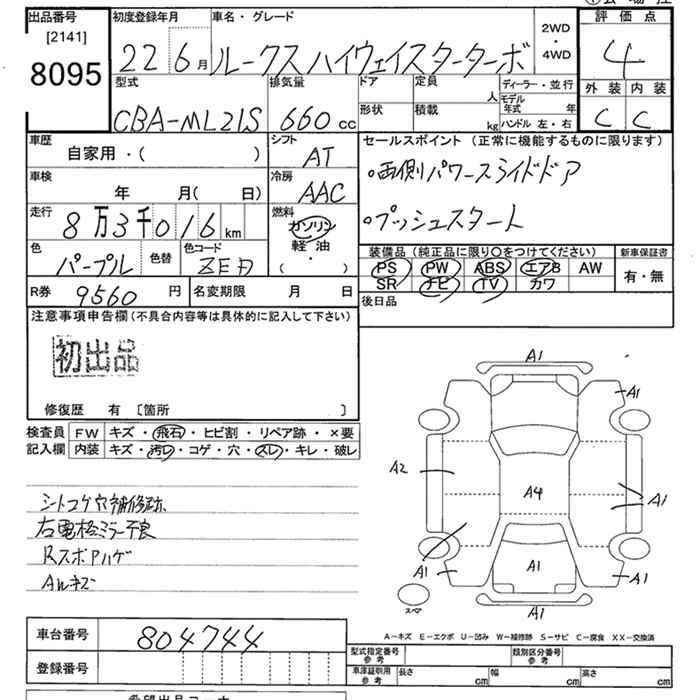 出品番号
[2141]
8095
初度登録年月
22 6月
車名・グレード
ルークス ハイウェイスターターボ
2WD
・
4WD
評価点
4
型式
CBA-ML21S
排気量
660 cc
ドア
定員
人
ディーラー・並行
形状
積載
kg
モデル年式 年
ハンドル 左・右
外装 内装
C C
車歴
自家用・( )
シフト
AT
車検
年 月( 日)
冷房
AAC
走行
8万3千016km
燃料
ガソリン
軽油
・
( )
色
パープル
色替
色コード
ZEA
R券 9560 円
名変期限 月 日
セールスポイント (正常に機能するものに限ります)
○両側パワースライドドア
○プッシュスタート
装備品 (純正品に限り〇をつけてください)
PS PW ABS エアB AW
SR ナビ TV カワ
新車保証書
有・無
後日品
注意事項申告欄(不具合内容等は具体的に記入して下さい)
初出品
修復歴 有 〔箇所 〕
検査員
記入欄
FW キズ・飛石・ヒビ割・リペア跡・×要
内装 キズ・汚レ・コゲ・穴・スレ・キレ・破レ
シートコゲ穴補修跡
右電格ミラー不良
RスポAハゲ
AWキズ
A1
A1
A2
A4
A1
A1
A1
A1
A1
スペア
A-キズ E-エクボ U-凹み W-補修跡 S-サビ C-腐食 XX-交換済
車台番号 804744
登録番号
型式指定番号
参考
類別区分番号
参考
車庫証明用
参考
長さ cm 幅 cm 高さ cm
希望出品コーナー